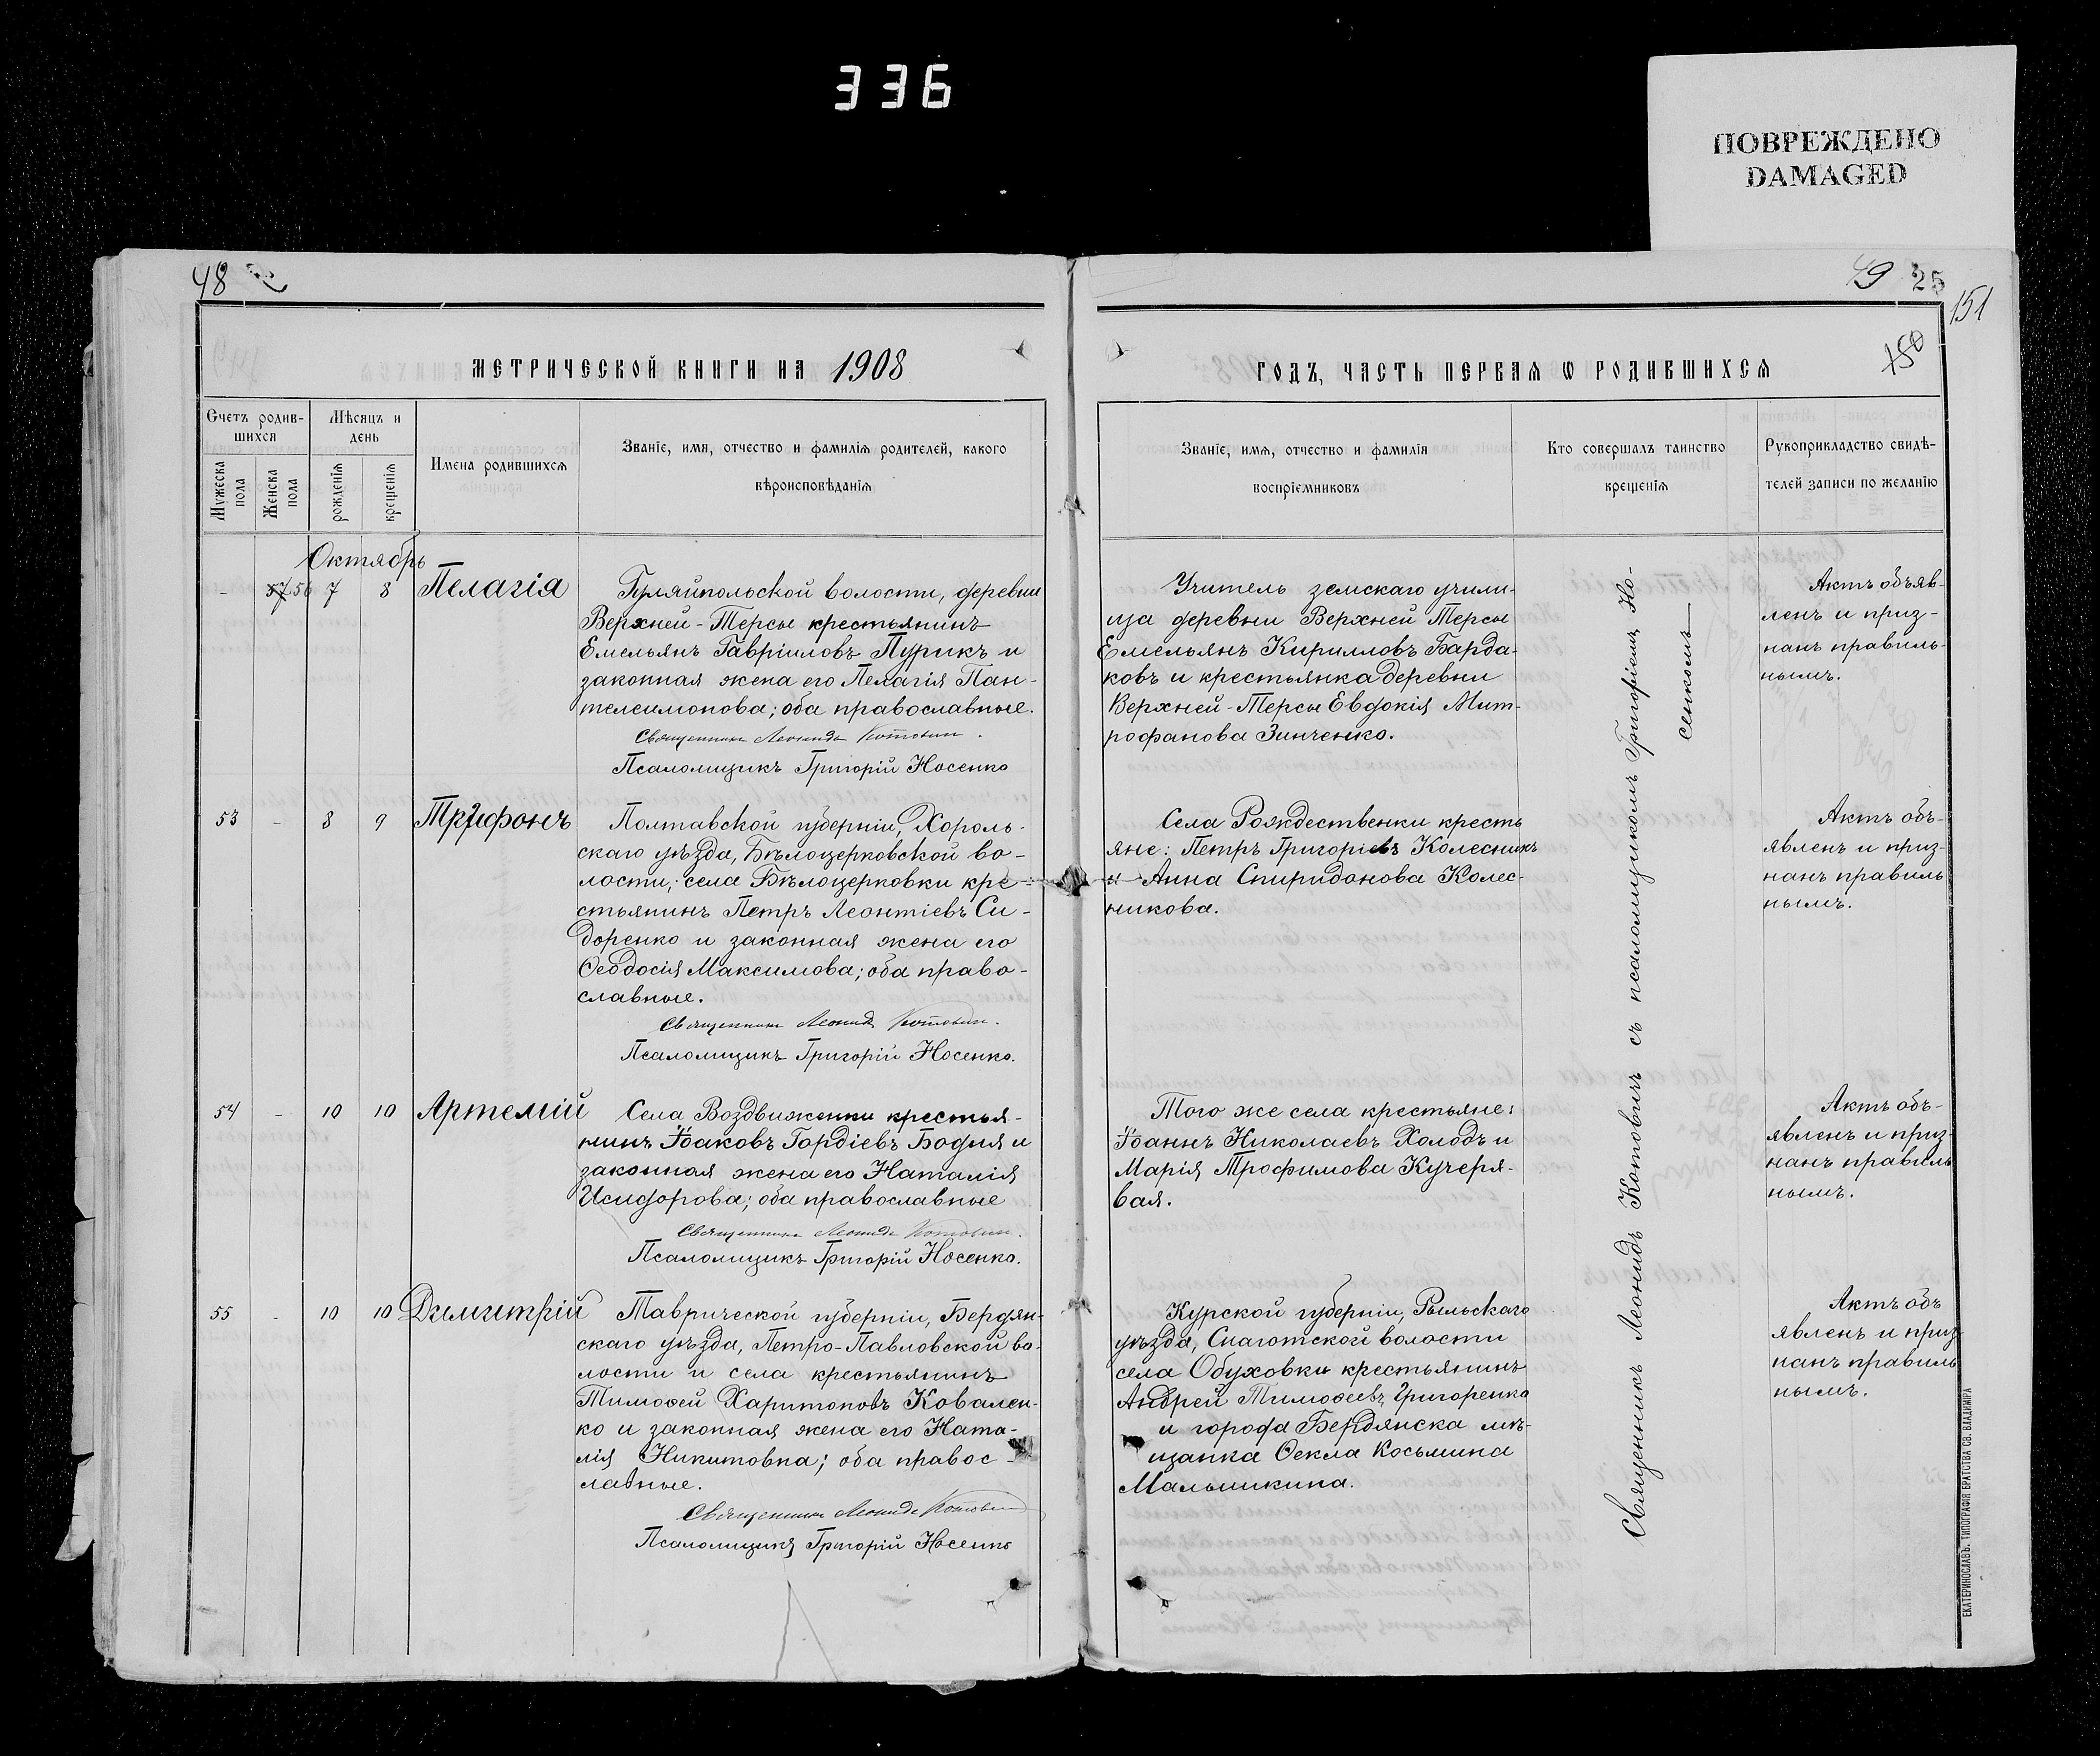 336
ПОВРЕЖДЕНО
DAMAGED
48
49 25
151
150
МЕТРИЧЕСКОЙ КНИГИ НА 1908
ГОДЪ, ЧАСТЬ ПЕРВАЯ Ѡ РОДИВШИХСЯ
Счетъ родив-
шихся
Мужеска
пола
Женска
пола
Мѣсяцъ и
день
рожденія
крещенія
Имена родившихся
Званіе, имя, отчество и фамилія родителей, какого
вѣроисповѣданія
Званіе, имя, отчество и фамилія
воспріемниковъ
Кто совершалъ таинство
крещенія
Рукоприкладство свидѣ-
телей записи по желанію
Октябрь
- 57 56 7 8 Пелагія
Гуляйпольской волости, деревни
Верхней-Терсы крестьянинъ
Емельянъ Гавріиловъ Пурикъ и
законная жена его Пелагія Пан-
телеимонова; оба православные.
Священникъ Леонидъ Котовичъ.
Псаломщикъ Григорій Носенко
Учитель земскаго учили-
ща деревни Верхней Терсы
Емельянъ Кирилловъ Барда-
ковъ и крестьянка деревни
Верхней-Терсы Евдокія Мит-
рофанова Зинченко.
Актъ объяв-
ленъ и приз-
нанъ правиль-
нымъ.
53 - 8 9 Трифонъ
Полтавской губерніи, Хороль-
скаго уѣзда, Бѣлоцерковской во-
лости, села Бѣлоцерковки кре-
стьянинъ Петръ Леонтіевъ Си-
доренко и законная жена его
Ѳеодосія Максимова; оба право-
славные.
Священникъ Леонидъ Котовичъ.
Псаломщикъ Григорій Носенко.
Села Рождественки кресть
яне: Петръ Григоріевъ Колесникъ
и Анна Спиридонова Колес-
никова.
Актъ объ-
явленъ и приз-
нанъ правиль
нымъ.
54 - 10 10 Артемій
Села Воздвиженки крестья-
нинъ Іоаковъ Гордіевъ Бодня и
законная жена его Наталія
Исидорова; оба православные
Священникъ Леонидъ Котовичъ.
Псаломщикъ Григорій Носенко.
Того же села крестьяне:
Іоаннъ Николаевъ Холодъ и
Марія Трофимова Кучеря-
вая.
Актъ объ-
явленъ и приз-
нанъ правиль
нымъ.
55 - 10 10 Димитрій
Таврической губерніи, Бердян-
скаго уѣзда, Петро-Павловской во-
лости и села крестьянинъ
Тимоѳей Харитоновъ Ковален-
ко и законная жена его Ната-
лія Никитовна; оба правос-
лавные.
Священникъ Леонидъ Котовичъ
Псаломщикъ Григорій Носенко
Курской губерніи, Рыльскаго
уѣзда, Снаготской волости
села Обуховки крестьянинъ
Андрей Тимоѳеевъ Григоренко
и города Бердянска мѣ-
щанка Ѳекла Косьмина
Мальшикина.
Актъ объ
явленъ и приз-
нанъ правиль
нымъ.
Священникъ Леонидъ Котовичъ съ псаломщикомъ Григоріемъ Но-
сенкомъ
ЕКАТЕРИНОСЛАВЪ. ТИПОГРАФІЯ БРАТСТВА СВ. ВЛАДИМІРА